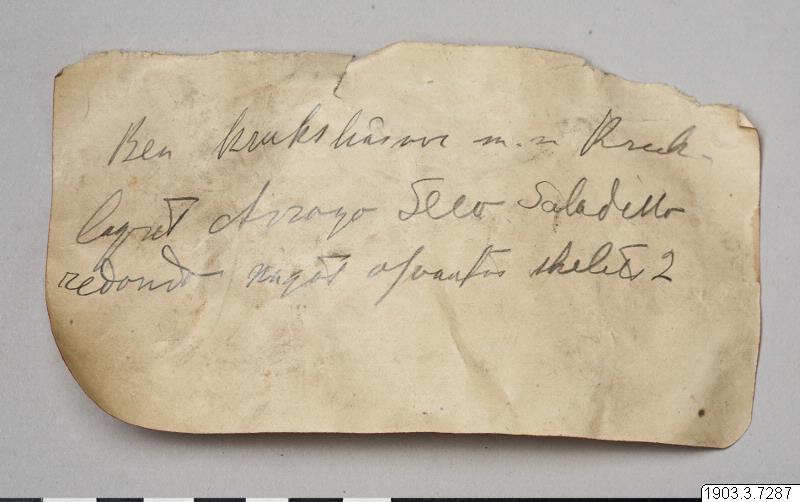 Ben krukskärvor m.m Kruk-
lagret Arroyo Seco Saladillo
redondo något ofvanför skelet 2
1903.3.7287